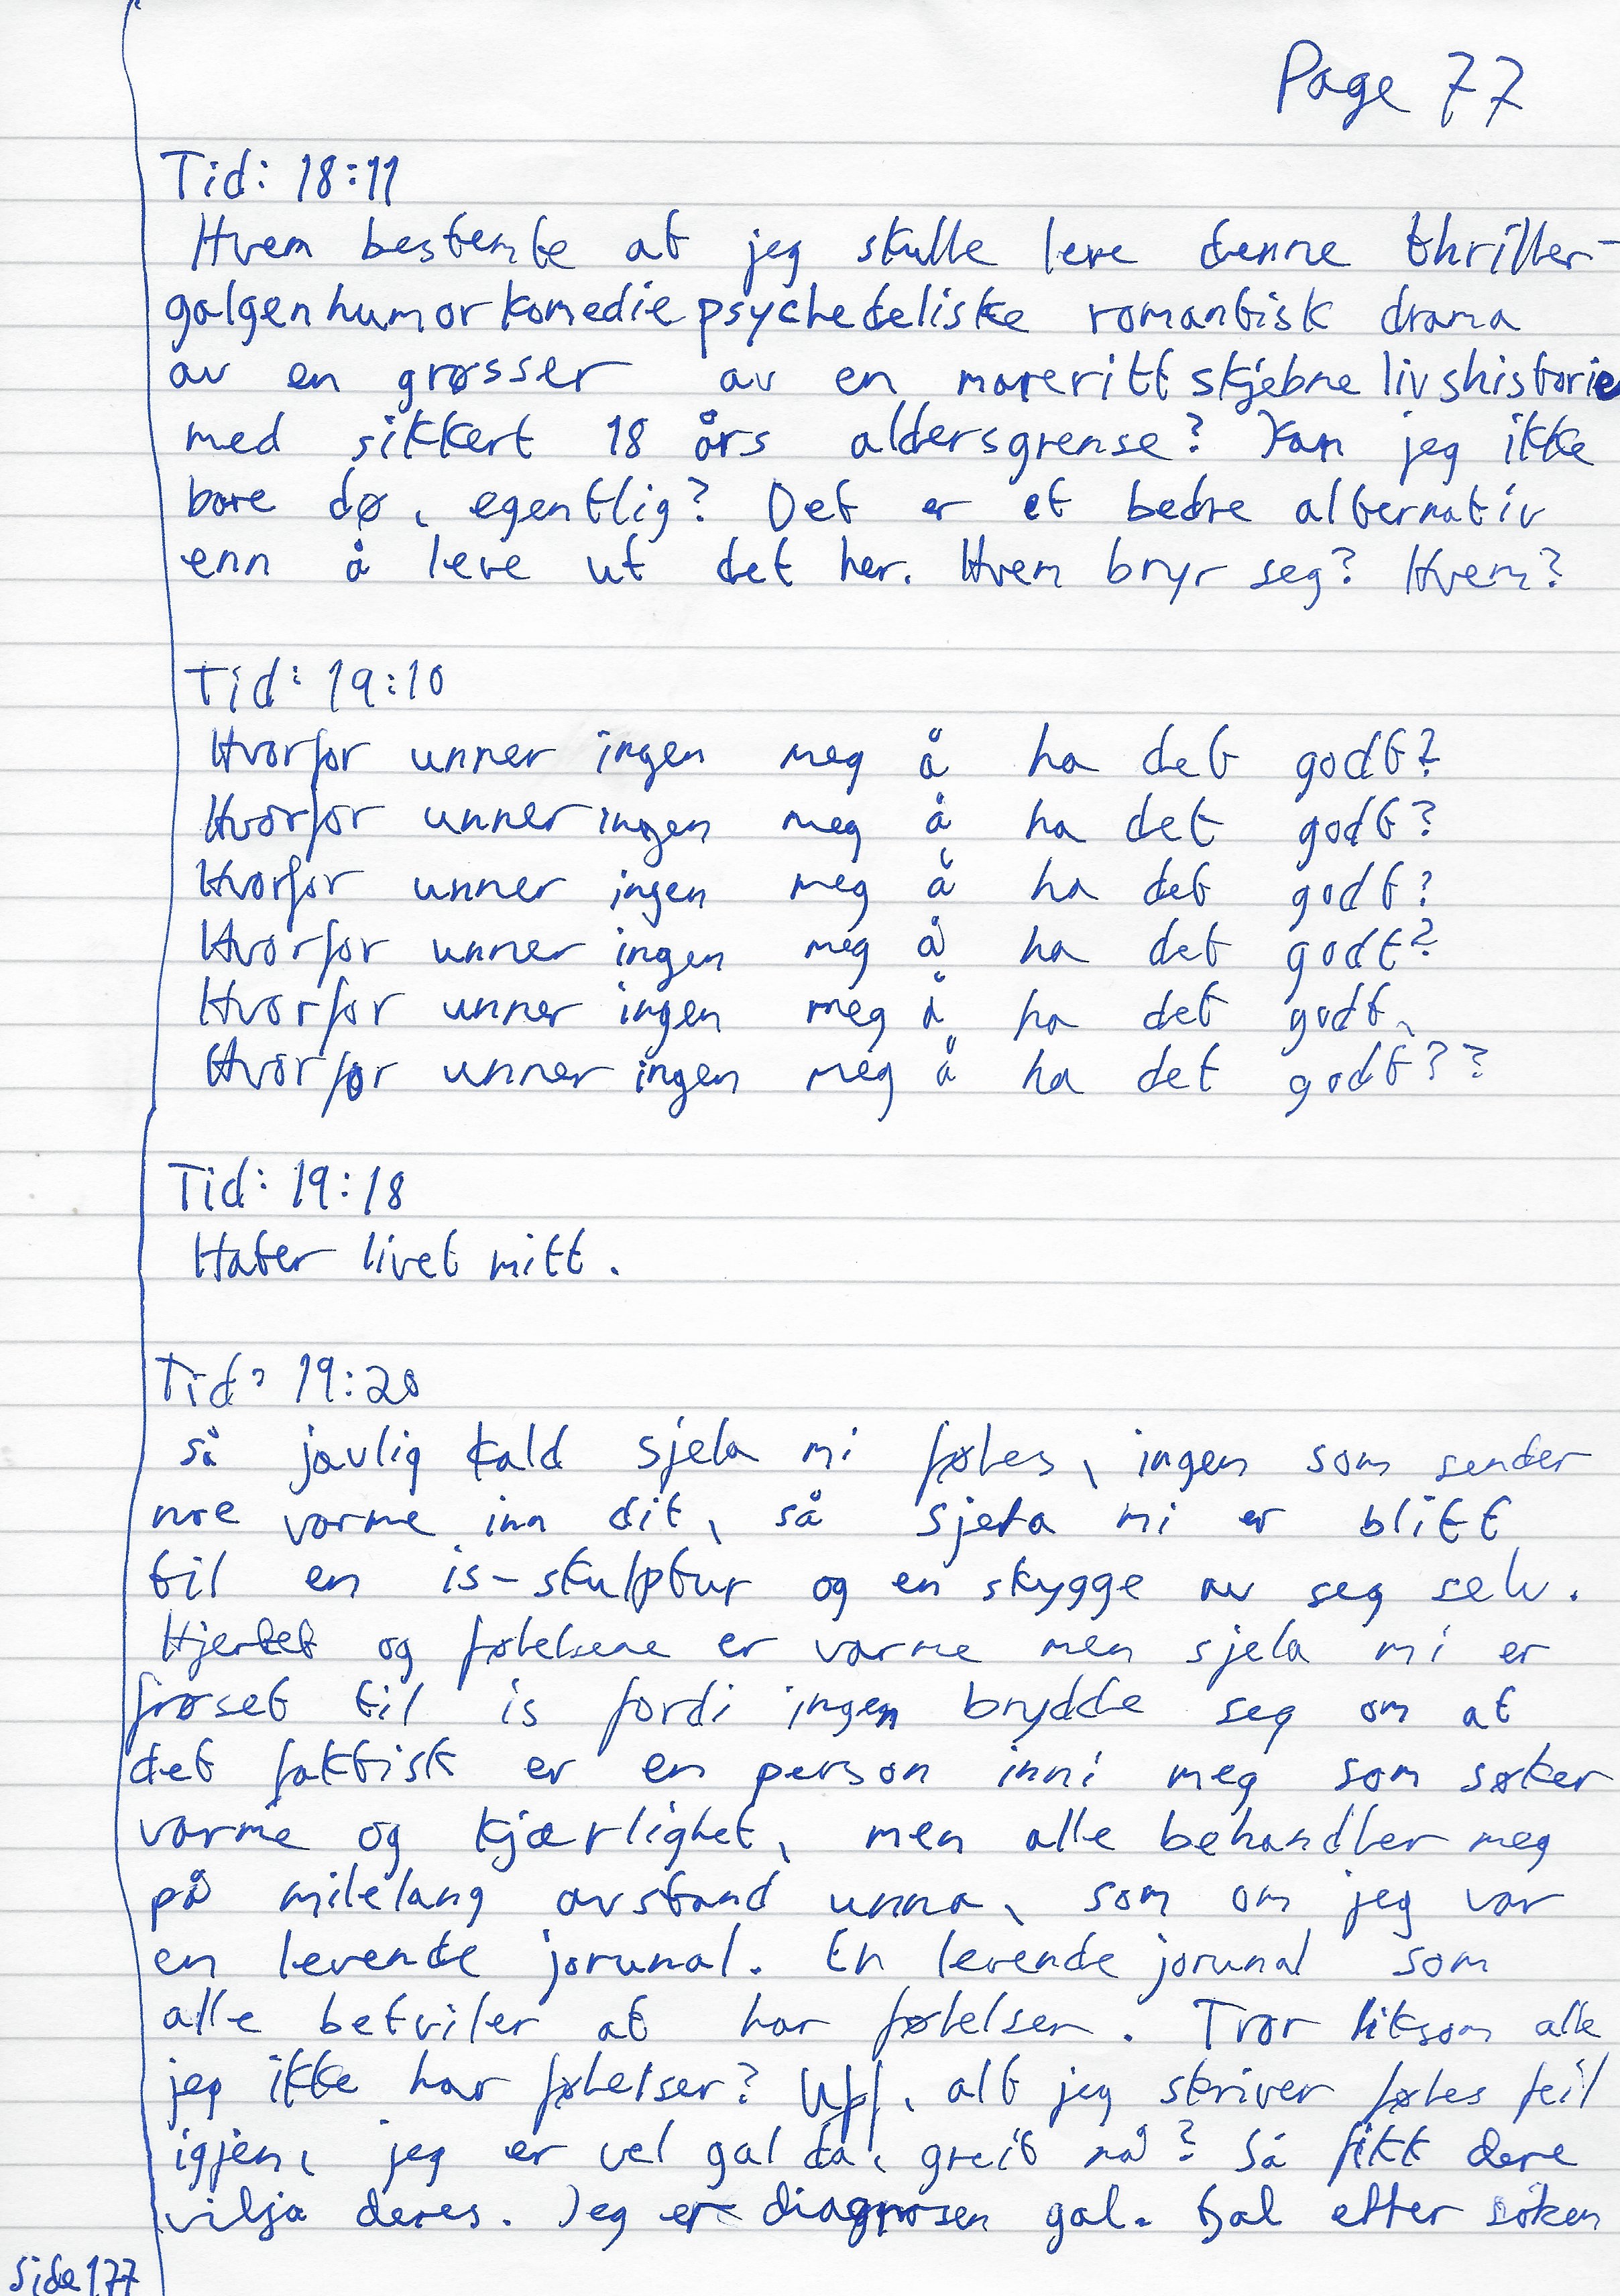 Page 77
Tid: 18:11
Hvem bestemte at jeg skulle leve denne thriller-
galgenhumorkomediepsychedeliske romantisk drama
av en grøsser av en mareritt skjebne livshistorie
med sikkert 18 års aldersgrense? Kan jeg ikke
bare dø, egentlig? Det er et bedre alternativ
enn å leve ut det her. Hvem bryr seg? Hvem?
Tid: 19:10
Hvorfor unner ingen meg å ha det godt?
Hvorfor unner ingen meg å ha det godt?
Hvorfor unner ingen meg å ha det godt?
Hvorfor unner ingen meg å ha det godt?
Hvorfor unner ingen meg å ha det godt,
Hvorfor unner ingen meg å ha det godt??
Tid: 19:18
Hater livet mitt.
Tid: 19:20
så javlig kald sjela mi føles, ingen som sender
noe varme inn dit, så sjela mi er blitt
til en is-skulptur og en skygge av seg selv.
Hjertet og følelsene er varme men sjela mi er
frøset til is fordi ingen brydde seg om at
det faktisk er en person inni meg som søker
varme og kjærlighet, men alle behandler meg
på milelang avstand unna, som om jeg var
en levende jorunal. En levende jorunal som
alle betviler at har følelser. Tror liksom alle
jeg ikke har følelser? Uff, alt jeg skriver føles feil
igjen, jeg er vel gal da, greit nå? Så fikk dere
vilja deres. Jeg er diagnosen gal. Gal etter søken
Side 177